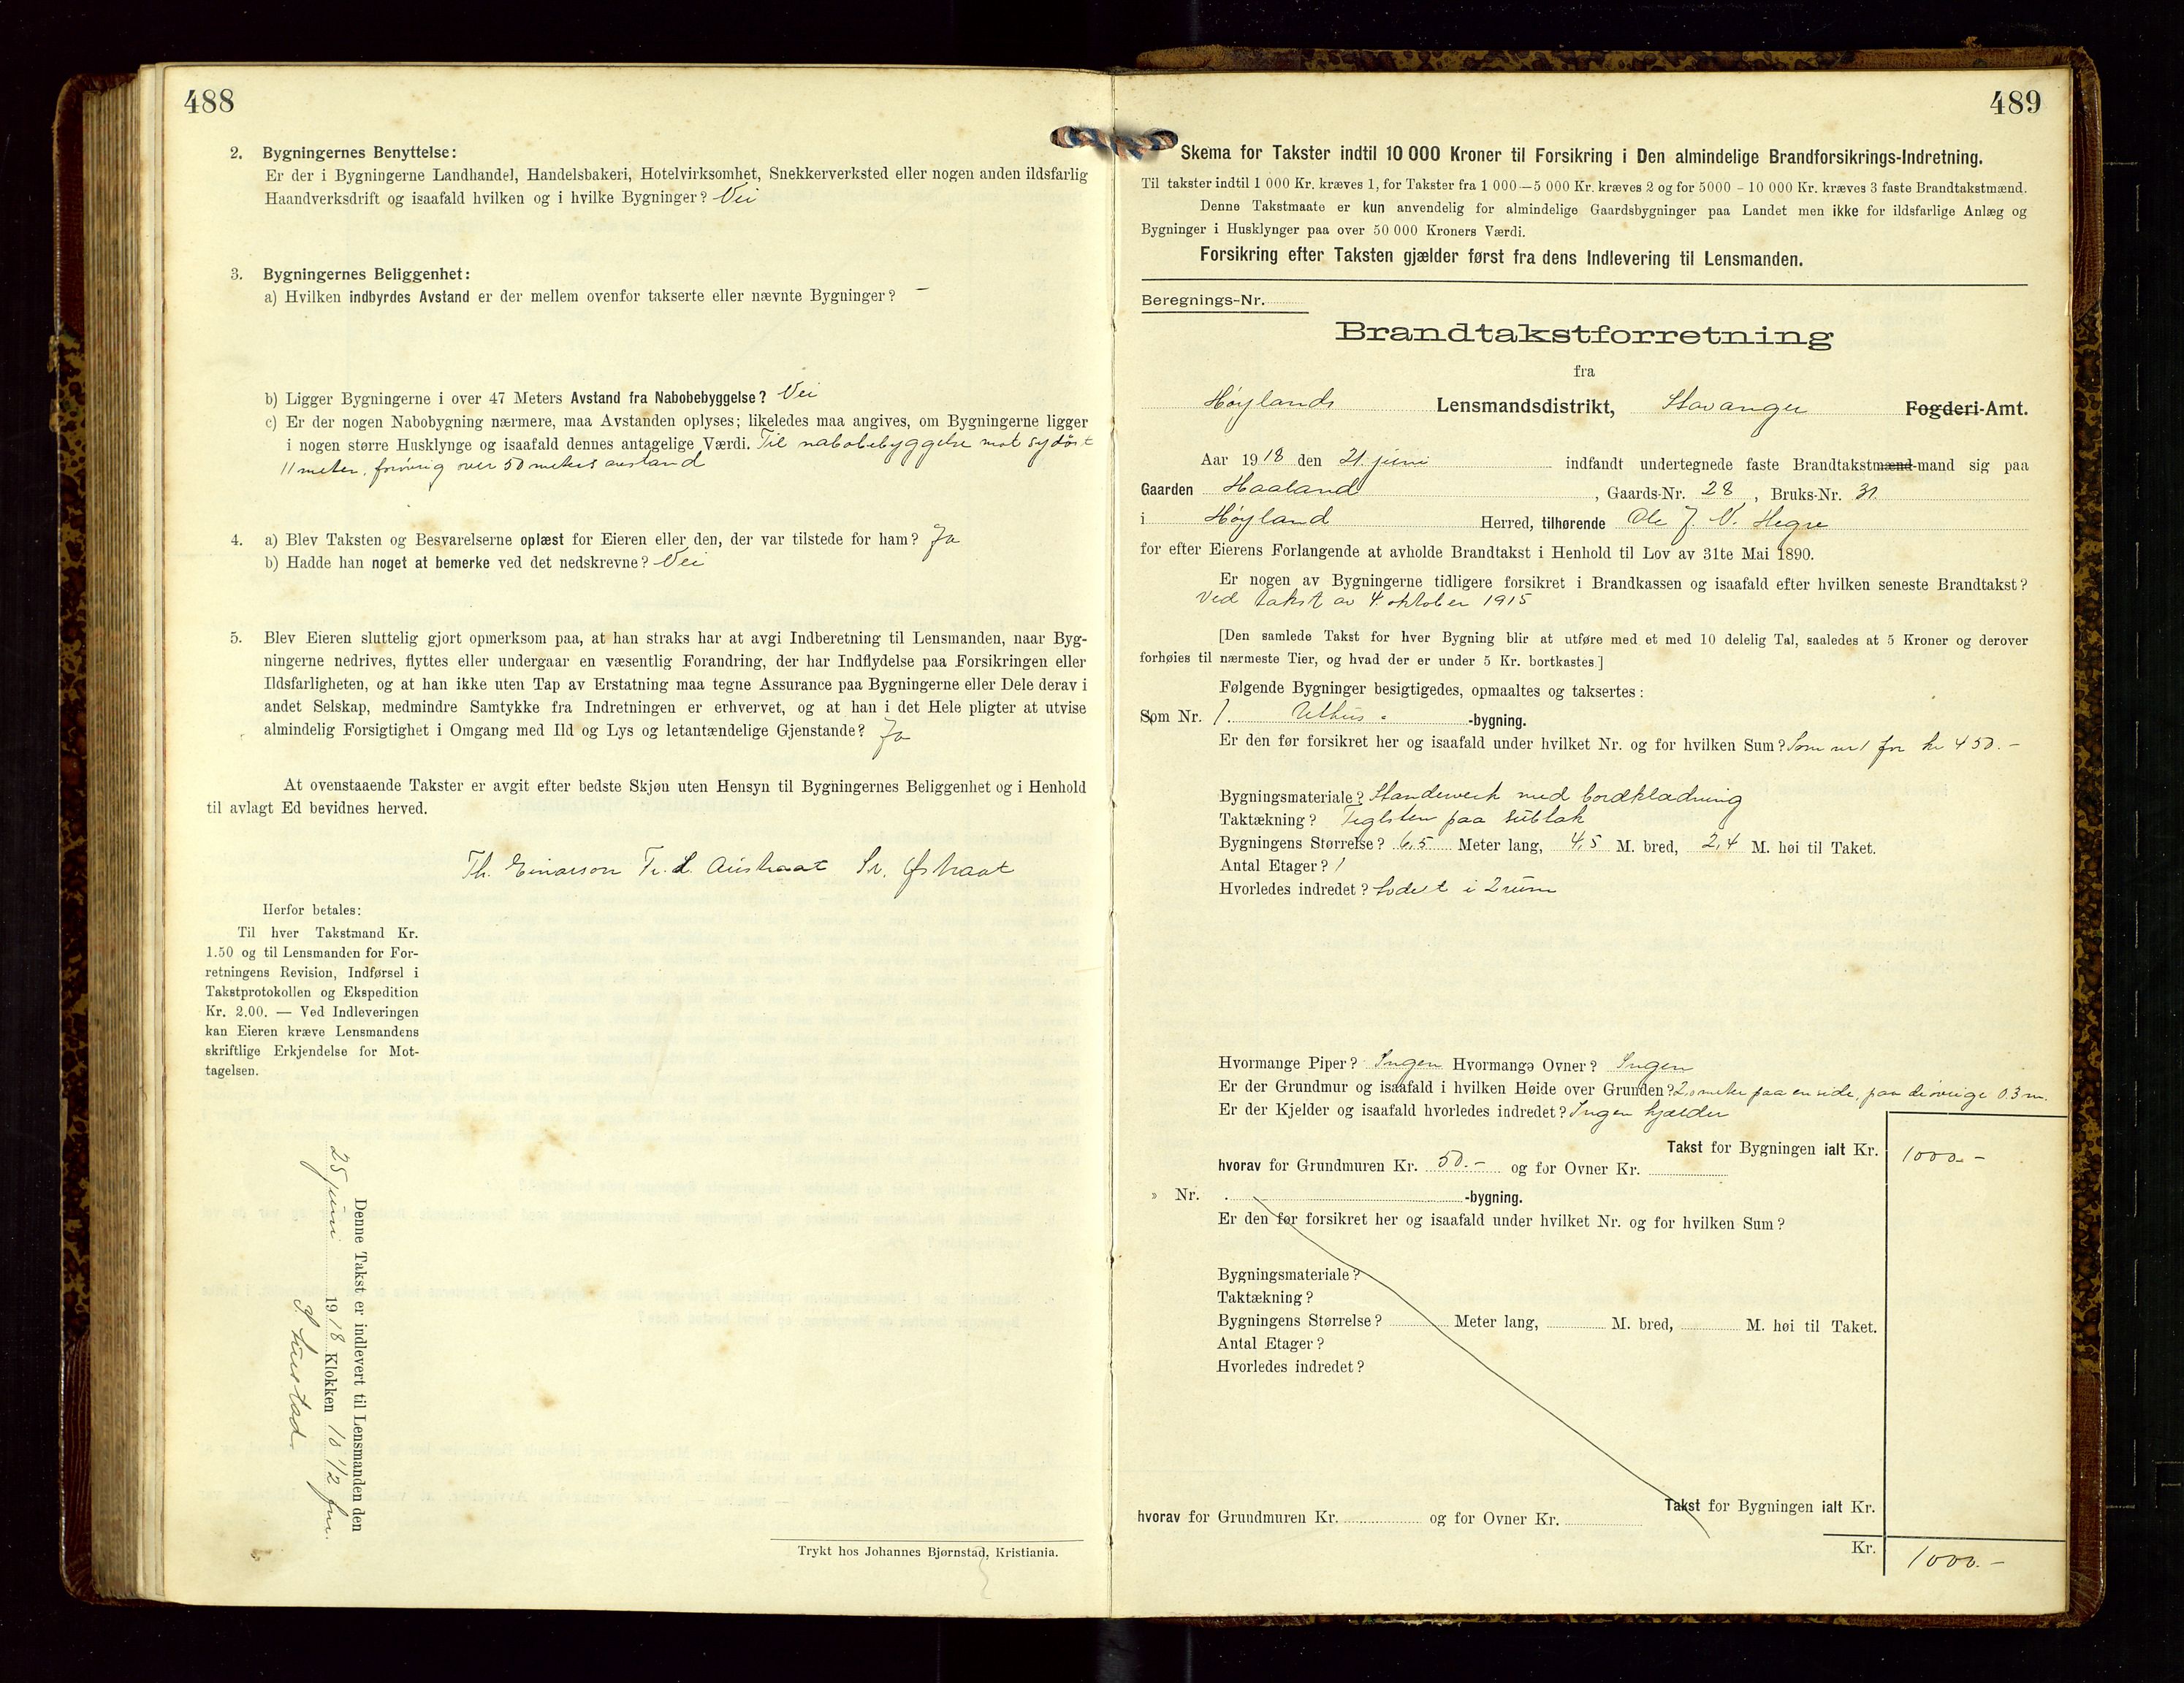 488
2. Bygningernes Benyttelse:
Er der i Bygningerne Landhandel, Handelsbakeri, Hotelvirksomhet, Snekkerverksted eller nogen anden ildsfarlig
Haandverksdrift og isaafald hvilken og i hvilke Bygninger? Nei
3. Bygningernes Beliggenhet:
a) Hvilken indbyrdes Avstand er der mellem ovenfor takserte eller nævnte Bygninger? –
b) Ligger Bygningerne i over 47 Meters Avstand fra Nabobebyggelse? Nei
c) Er der nogen Nabobygning nærmere, maa Avstanden oplyses; likeledes maa angives, om Bygningerne ligger
i nogen større Husklynge og isaafald dennes antagelige Værdi. Til nabobebyggelse mot sydøst
11 meter, forøvrig over 50 meters avstand
4. a) Blev Taksten og Besvarelserne oplæst for Eieren eller den, der var tilstede for ham? Ja
b) Hadde han noget at bemerke ved det nedskrevne? Nei
5. Blev Eieren sluttelig gjort opmerksom paa, at han straks har at avgi Indberetning til Lensmanden, naar Byg-
ningerne nedrives, flyttes eller undergaar en væsentlig Forandring, der har Indflydelse paa Forsikringen eller
Ildsfarligheten, og at han ikke uten Tap av Erstatning maa tegne Assurance paa Bygningerne eller Dele derav i
andet Selskap, medmindre Samtykke fra Indretningen er erhvervet, og at han i det Hele pligter at utvise
almindelig Forsigtighet i Omgang med Ild og Lys og letantændelige Gjenstande? Ja
At ovenstaaende Takster er avgit efter bedste Skjøn uten Hensyn til Bygningernes Beliggenhet og i Henhold
til avlagt Ed bevidnes herved.
Th. Einarson Tr. L. Austraat Sv. Østraat
Herfor betales:
Til hver Takstmand Kr.
1.50 og til Lensmanden for For-
retningens Revision, Indførsel i
Takstprotokollen og Ekspedition
Kr. 2.00. — Ved Indleveringen
kan Eieren kræve Lensmandens
skriftlige Erkjendelse for Mot-
tagelsen.
Denne Takst er indlevert til Lensmanden den
25 juni 1918 Klokken 10 1/2 fm.
Trykt hos Johannes Bjørnstad, Kristiania.
489
Skema for Takster indtil 10 000 Kroner til Forsikring i Den almindelige Brandforsikrings-Indretning.
Til takster indtil 1 000 Kr. kræves 1, for Takster fra 1 000—5 000 Kr. kræves 2 og for 5000 – 10 000 Kr. kræves 3 faste Brandtakstmænd.
Denne Takstmaate er kun anvendelig for almindelige Gaardsbygninger paa Landet men ikke for ildsfarlige Anlæg og
Bygninger i Husklynger paa over 50 000 Kroners Værdi.
Forsikring efter Taksten gjælder først fra dens Indlevering til Lensmanden.
Beregnings-Nr.
Brandtakstforretning
fra
Høylands Lensmandsdistrikt, Stavanger Fogderi-Amt.
Aar 1918 den 21. juni indfandt undertegnede faste Brandtakstmænd-mand sig paa
Gaarden Haaland, Gaards-Nr. 28, Bruks-Nr. 31
i Høyland Herred, tilhørende Ole J. N. Hegre
for efter Eierens Forlangende at avholde Brandtakst i Henhold til Lov av 31te Mai 1890.
Er nogen av Bygningerne tidligere forsikret i Brandkassen og isaafald efter hvilken seneste Brandtakst?
Ved takst av 4. oktober 1915
[Den samlede Takst for hver Bygning blir at utføre med et med 10 delelig Tal, saaledes at 5 Kroner og derover
forhøies til nærmeste Tier, og hvad der er under 5 Kr. bortkastes.]
Følgende Bygninger besigtigedes, opmaaltes og taksertes:
Som Nr. 1. Uthus -bygning.
Er den før forsikret her og isaafald under hvilket Nr. og for hvilken Sum? Som nr 1 for kr 450.–
Bygningsmateriale? Standverk med bordklædning
Taktækning? Teglsten paa sutak
Bygningens Størrelse? 6,5 Meter lang, 4,5 M. bred, 2,4 M. høi til Taket.
Antal Etager? 1
Hvorledes indredet? Indelt i 2 rum
Hvormange Piper? Ingen Hvormange Ovner? Ingen
Er der Grundmur og isaafald i hvilken Høide over Grunden? 2,0 meter paa en side, paa de øvrige 0.3 m.
Er der Kjelder og isaafald hvorledes indredet? Ingen kjælder
Takst for Bygningen ialt Kr. 1000.–
hvorav for Grundmuren Kr. 50.– og for Ovner Kr.
» Nr. . -bygning.
Er den før forsikret her og isaafald under hvilket Nr. og for hvilken Sum?
Bygningsmateriale?
Taktækning?
Bygningens Størrelse? Meter lang, M. bred, M. høi til Taket.
Antal Etager?
Hvorledes indredet?
Takst for Bygningen ialt Kr.
hvorav for Grundmuren Kr. og for Ovner Kr.
Kr. 1000.–